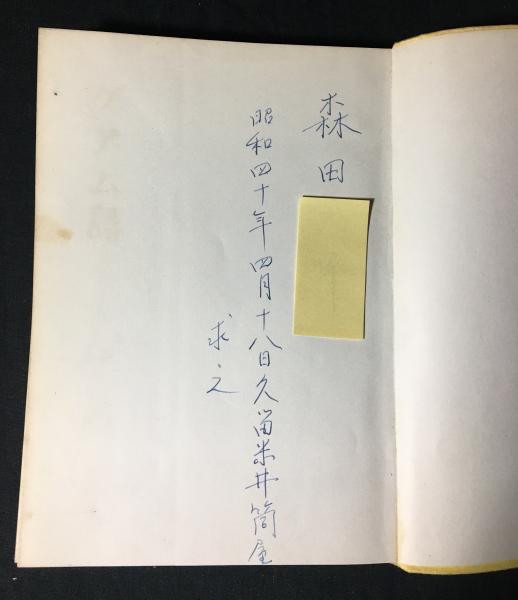 森田
昭和四十年四月十八日久留米井筒屋
求之